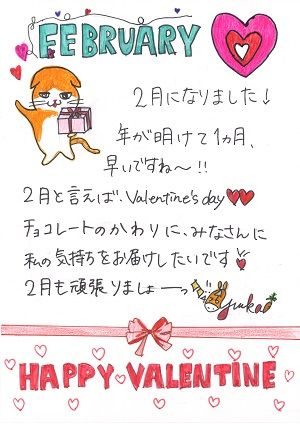 FEBRUARY
2月になりました↓
年が明けて1ヵ月、
早いですね〜!!
2月と言えば、Valentine's day♥♥
チョコレートのかわりに、みなさんに
私の気持ちをお届けしたいです
2月も頑張りましょーっ yuka
HAPPY VALENTINE